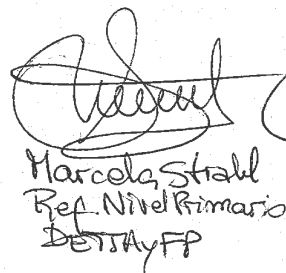 Marcela Strahl
Ref. Nivel Primario
DETTAyFP